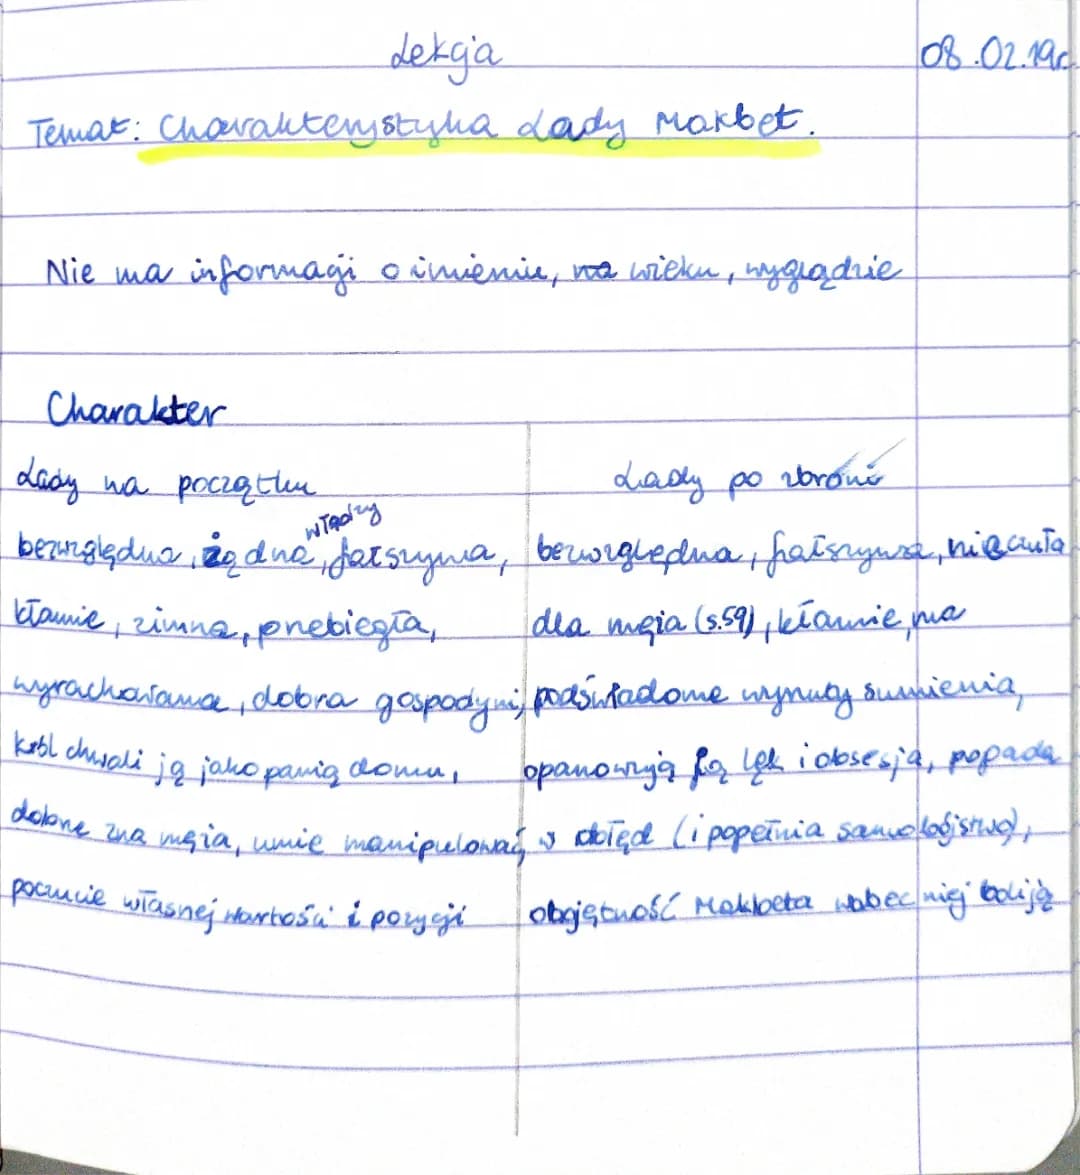 Lekcja
08.02.19r.
Temat: Charakterystyka Lady Makbet.
Nie ma informacji o imieniu, na wieku, wyglądzie
Charakter
Lady na początku
bezwzględna, żądna władzy, fałszywa,
kłamie, zimna, przebiegła,
wyrachowana, dobra gospodyni,
król chwali ją jako panią domu,
dobrze zna męża, umie manipulować,
poczucie własnej wartości i pozycji
Lady po zbrodni
bezwzględna, fałszywa, nieczuła
dla męża (s.59), kłamie, ma
podświadome wyrzuty sumienia,
opanowują ją lęk i obsesja, popada
w obłęd (i popełnia samobójstwo),
obojętność Makbeta wobec niej boli ją